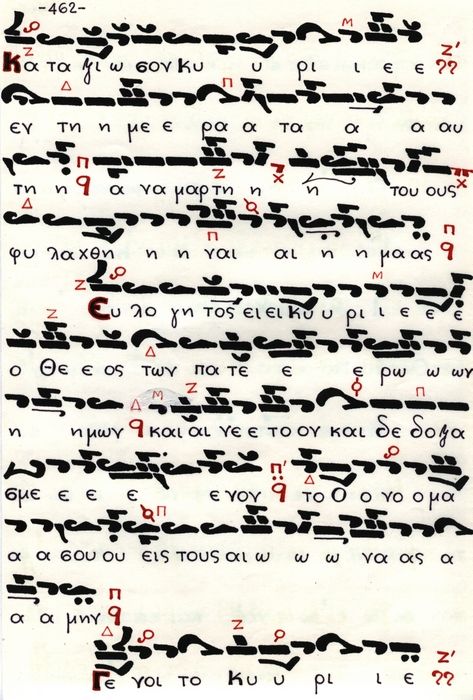 -462-
Κα τα ξι ω σον Κυ υ ρι ι ε ε
εν τη η με ε ρα α τα α α αυ
τη η α να μαρ τη η η του ους
φυ λα χθη η η ναι αι η η μα ας
Ευ λο γη τος ει ει Κυ υ ρι ι ε ε ε
ο Θε ε ος των πα τε ε ε ε ρω ω ων
η η μων και αι νε ε το ον και δε δο ξα
σμε ε ε ε ε νον το Ο ο νο ο μα
α α σου ου εις τους αι ω ω ω να ας α
α α μην
Γε νοι το Κυ υ ρι ι ε